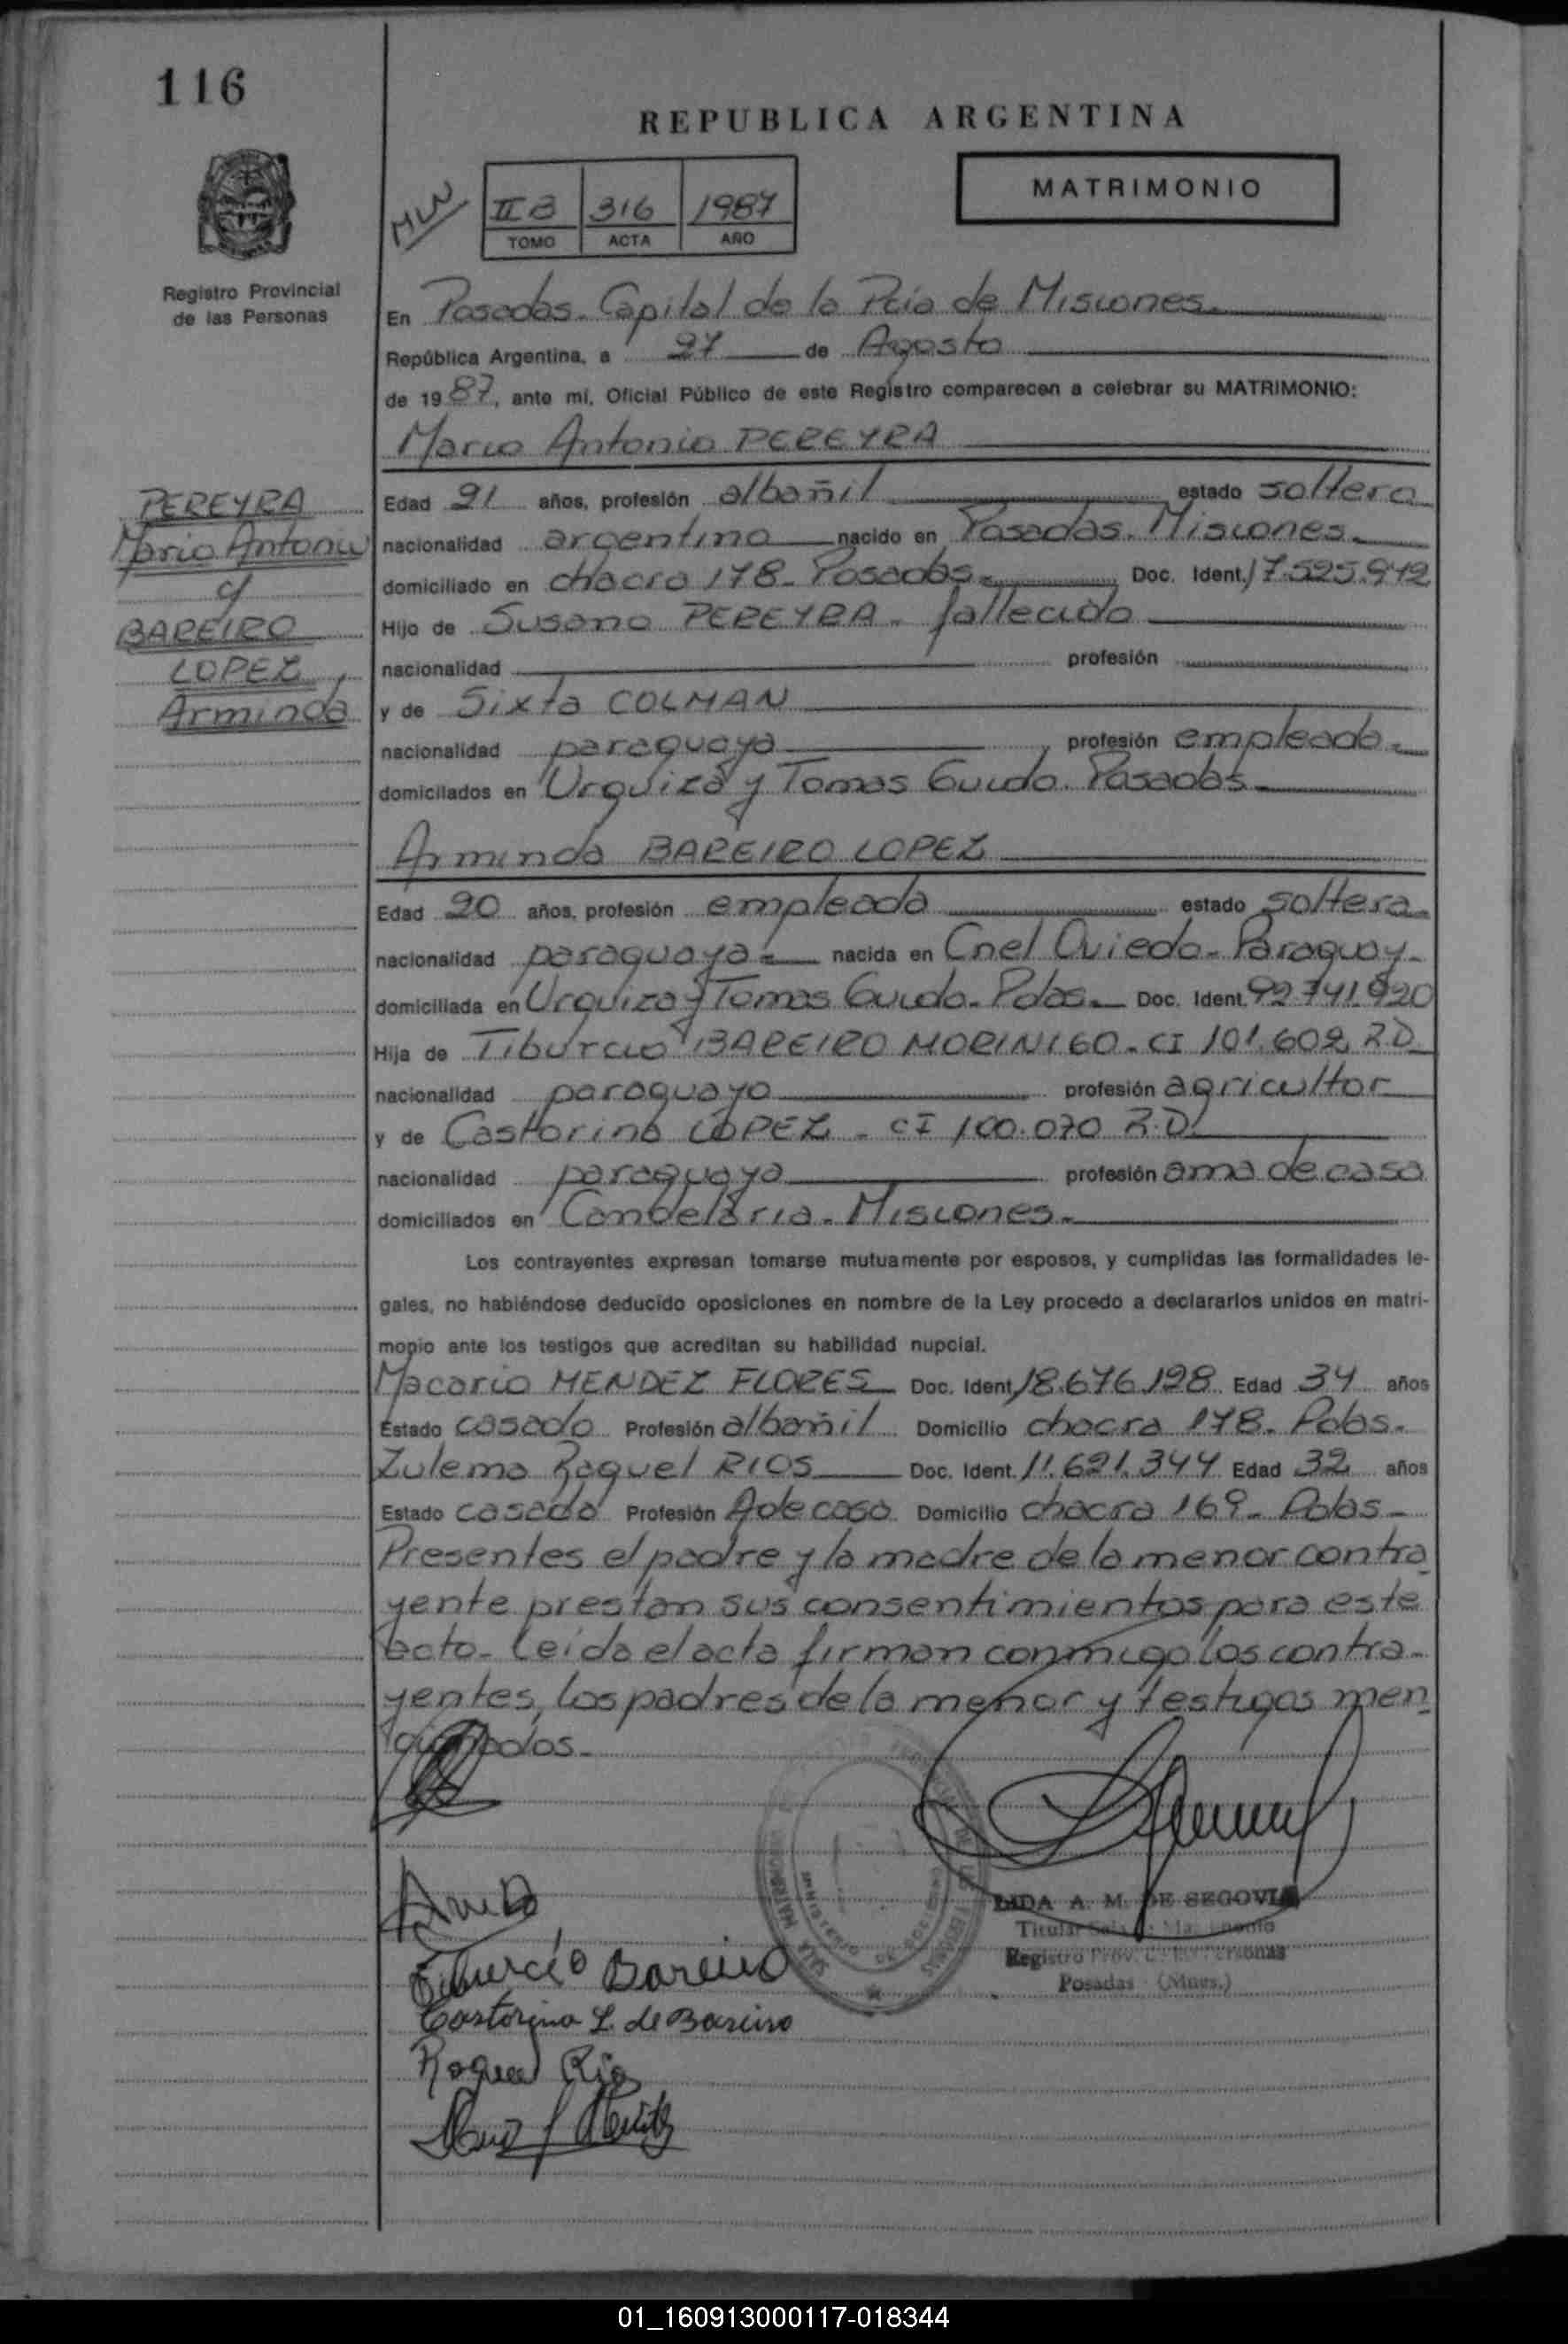 116
REPUBLICA ARGENTINA
MATRIMONIO
II B 316 1987
TOMO ACTA AÑO
Registro Provincial
de las Personas
En Posadas. Capital de la Pcia de Misiones.
República Argentina, a 27 de Agosto
de 1987, ante mí, Oficial Público de este Registro comparecen a celebrar su MATRIMONIO:
Mario Antonio PEREYRA
PEREYRA
Mario Antonio
c/
BAREIRO
LOPEZ,
Arminda
Edad 21 años, profesión albañil estado soltero
nacionalidad argentino nacido en Posadas. Misiones.
domiciliado en chacra 178. Posadas. Doc. Ident. 17.525.942
Hijo de Susano PEREYRA. fallecido
nacionalidad profesión
y de Sixta COLMAN
nacionalidad paraguaya profesión empleada.
domicilados en Urquiza y Tomas Guido. Posadas.
Arminda BAREIRO LOPEZ
Edad 20 años, profesión empleada estado soltera.
nacionalidad paraguaya. nacida en Cnel Oviedo. Paraguay.
domiciliada en Urquiza y Tomas Guido. Pdas. Doc. Ident. 92.741.920
Hija de Tiburcio BAREIRO MORINIGO. CI 101.602 R.D.
nacionalidad paraguayo profesión agricultor
y de Castorina LOPEZ. CI 100.070 R.D.
nacionalidad paraguaya profesión ama de casa
domiciliados en Candelaria. Misiones.
Los contrayentes expresan tomarse mutuamente por esposos, y cumplidas las formalidades le-
gales, no habiéndose deducido oposiciones en nombre de la Ley procedo a declararlos unidos en matri-
monio ante los testigos que acreditan su habilidad nupcial.
Macario MENDEZ FLORES Doc. Ident. 18.676.198 Edad 34 años
Estado casado Profesión albañil Domicilio chacra 178. Pdas.
Zulema Raquel RIOS Doc. Ident. 11.621.344 Edad 32 años
Estado casada Profesión A de casa Domicilio chacra 169. Pdas.
Presentes el padre y la madre de la menor contra
yente prestan sus consentimientos para este
acto. Leída el acta firman conmigo los contra-
yentes, los padres de la menor y testigos men
cionados.
LIDA A. M. DE SEGOVIA
Titular Sala de Matrimonio
Registro Prov. de las Personas
Posadas (Mnes.)
Tiburcio Bareiro
Castorina L. de Bareiro
Raquel Rios
01_160913000117-018344